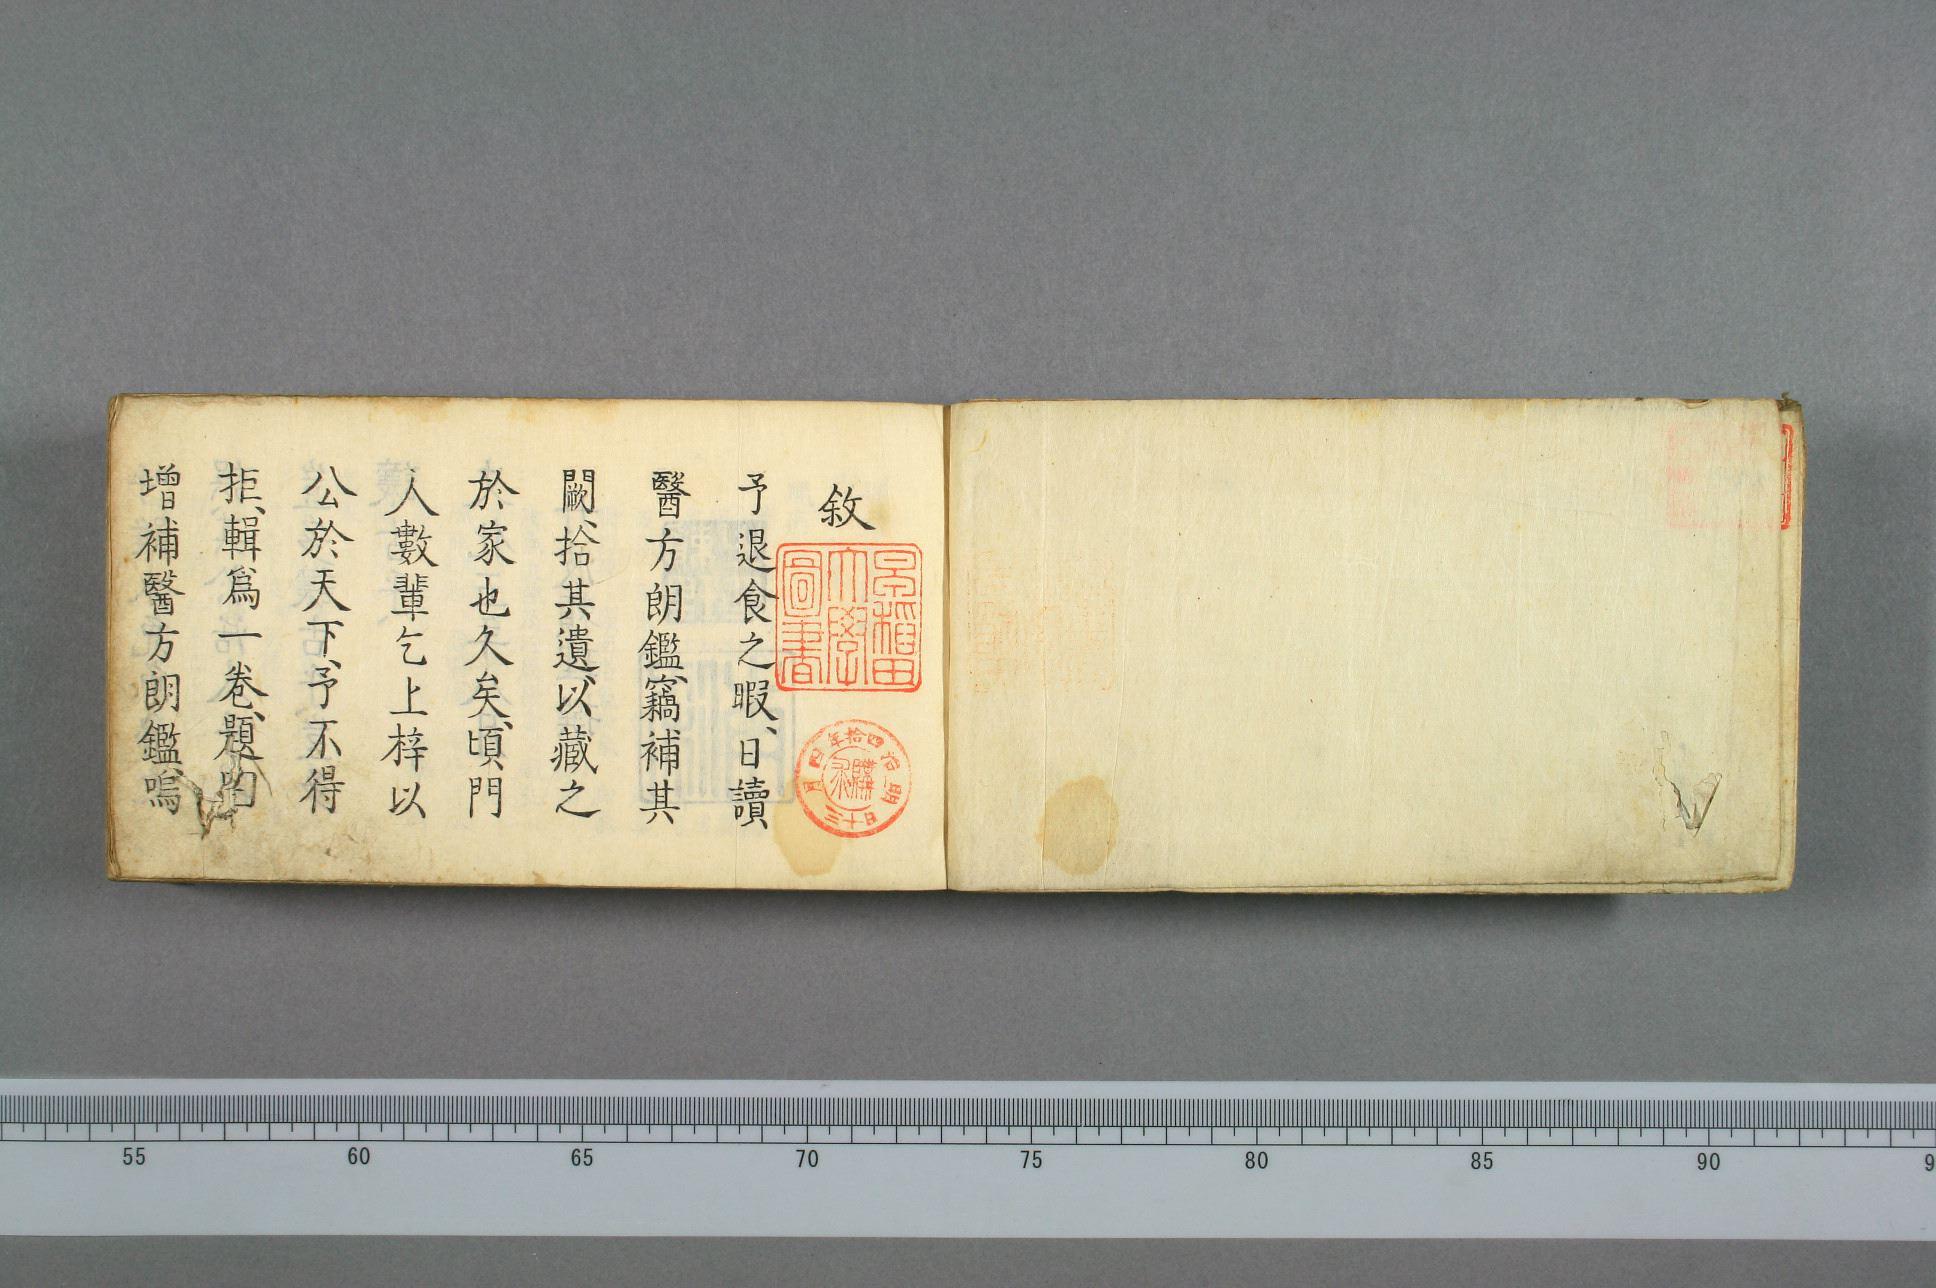 敘
予退食之暇、日讀
醫方朗鑑、竊補其
闕、拾其遺、以藏之
於家也久矣、頃門
人數輩乞上梓以
公於天下、予不得
拒、輯爲一卷、題曰
增補醫方朗鑑、嗚
早稻田
大學
圖書
明治四拾年四月
三十日
購求
55 60 65 70 75 80 85 90 9